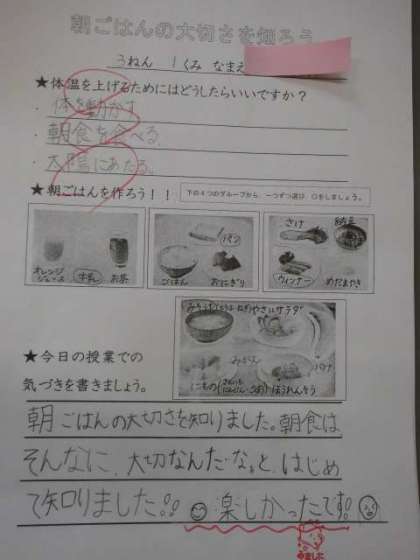 朝ごはんの大切さを知ろう
3ねん 1くみ なまえ
★体温を上げるためにはどうしたらいいですか？
・体を動かす
・朝食を食べる
・太陽にあたる
★朝ごはんを作ろう！！ 下の4つのグループから、一つずつ選び ○をしましょう。
オレンジジュース 牛乳 お茶
パン
ごはん おにぎり
さけ 納豆
ウィンナー めだまやき
みそしる やさいサラダ
みかん バナナ
にもの ほうれんそう
★今日の授業での
気づきを書きましょう。
朝ごはんの大切さを知りました。朝食は
そんなに、大切なんだな。と、はじめ
て知りました!! 楽しかったです!